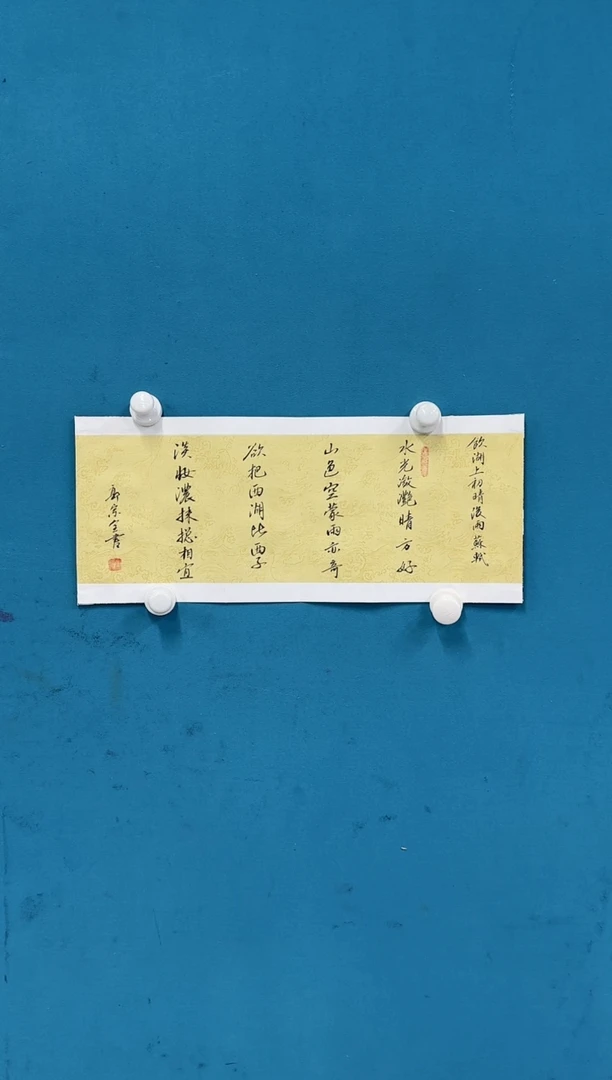 飲湖上初晴後雨蘇軾
水光瀲灧晴方好
山色空蒙雨亦奇
欲把西湖比西子
淡妝濃抹總相宜
宗全書